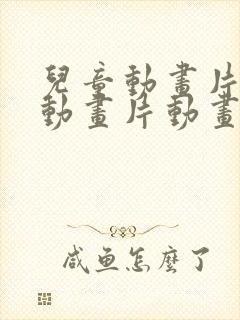 兒童動畫片
動畫片動畫
咸鱼怎麼了